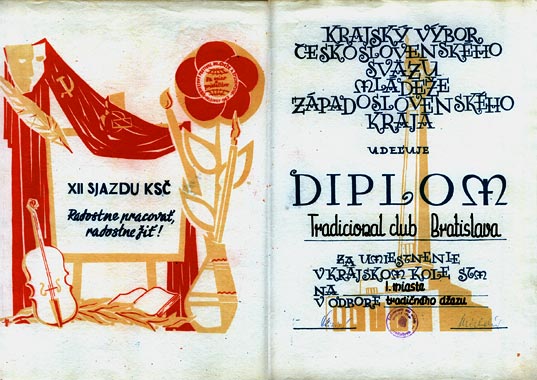 XII SJAZDU KSČ
Radostne pracovať,
radostne žiť!
KRAJSKÝ VÝBOR
ČESKOSLOVENSKÉHO
SVÄZU
MLÁDEŽE
ZÁPADOSLOVENSKÉHO
KRAJA
UDEĽUJE
DIPLOM
Tradicional club Bratislava
ZA UMESTNENIE
V KRAJSKOM KOLE STM
NA 1. mieste
V ODBORE tradičného džezu